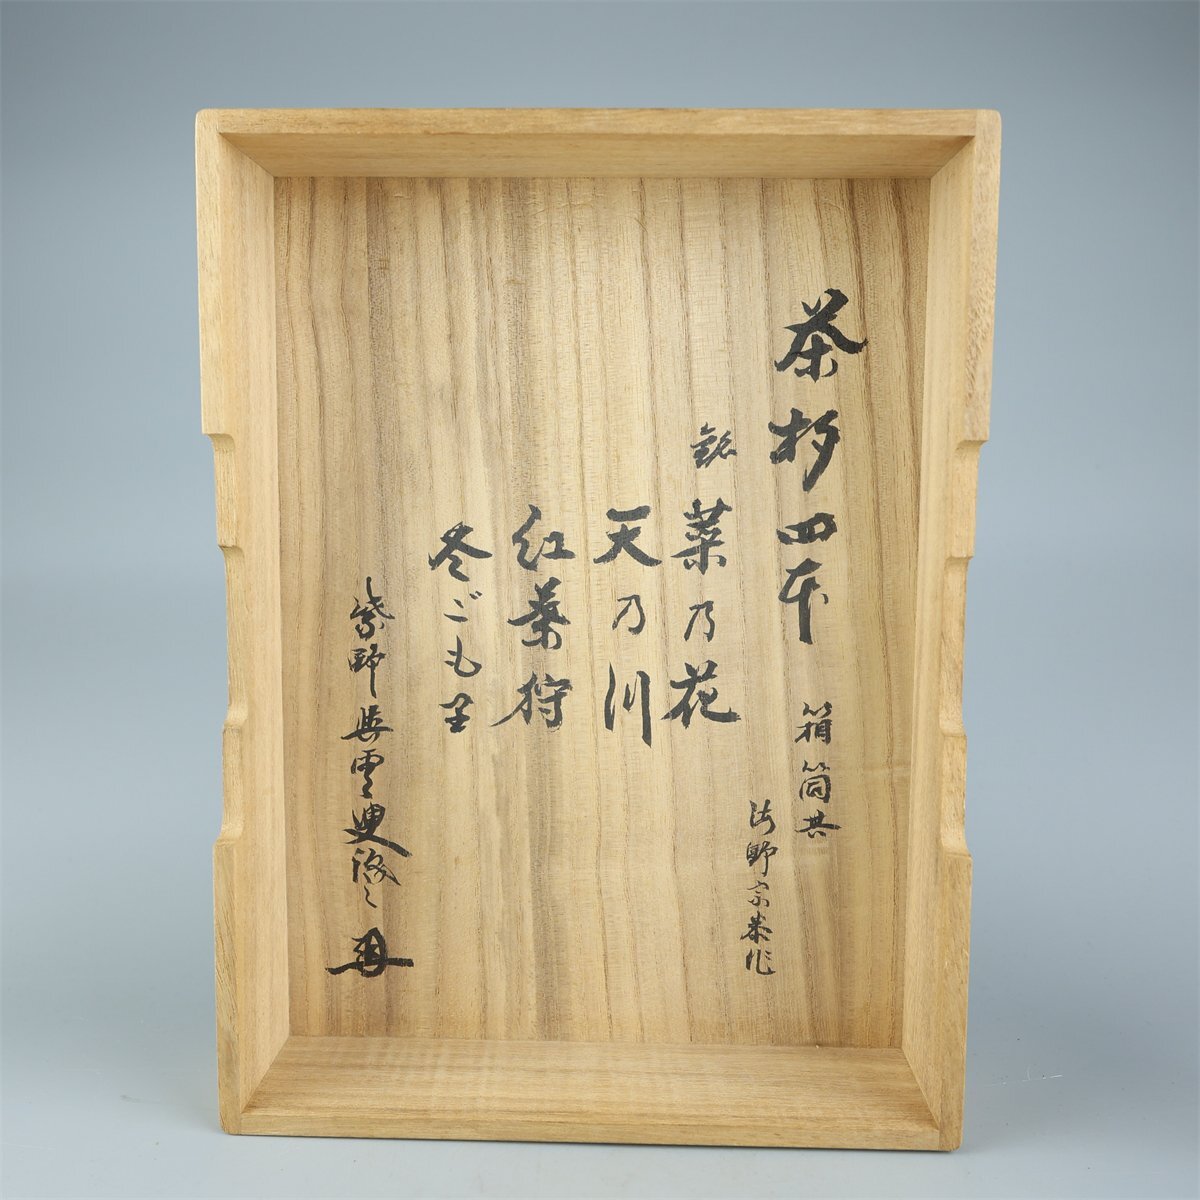 茶杓四本
箱筒共
海野宗泰作
銘 菜乃花
天乃川
紅葉狩
冬ごもり
紫野 雲叟